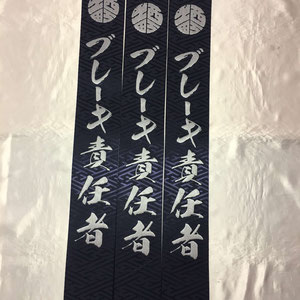 ブレーキ責任者
ブレーキ責任者
ブレーキ責任者